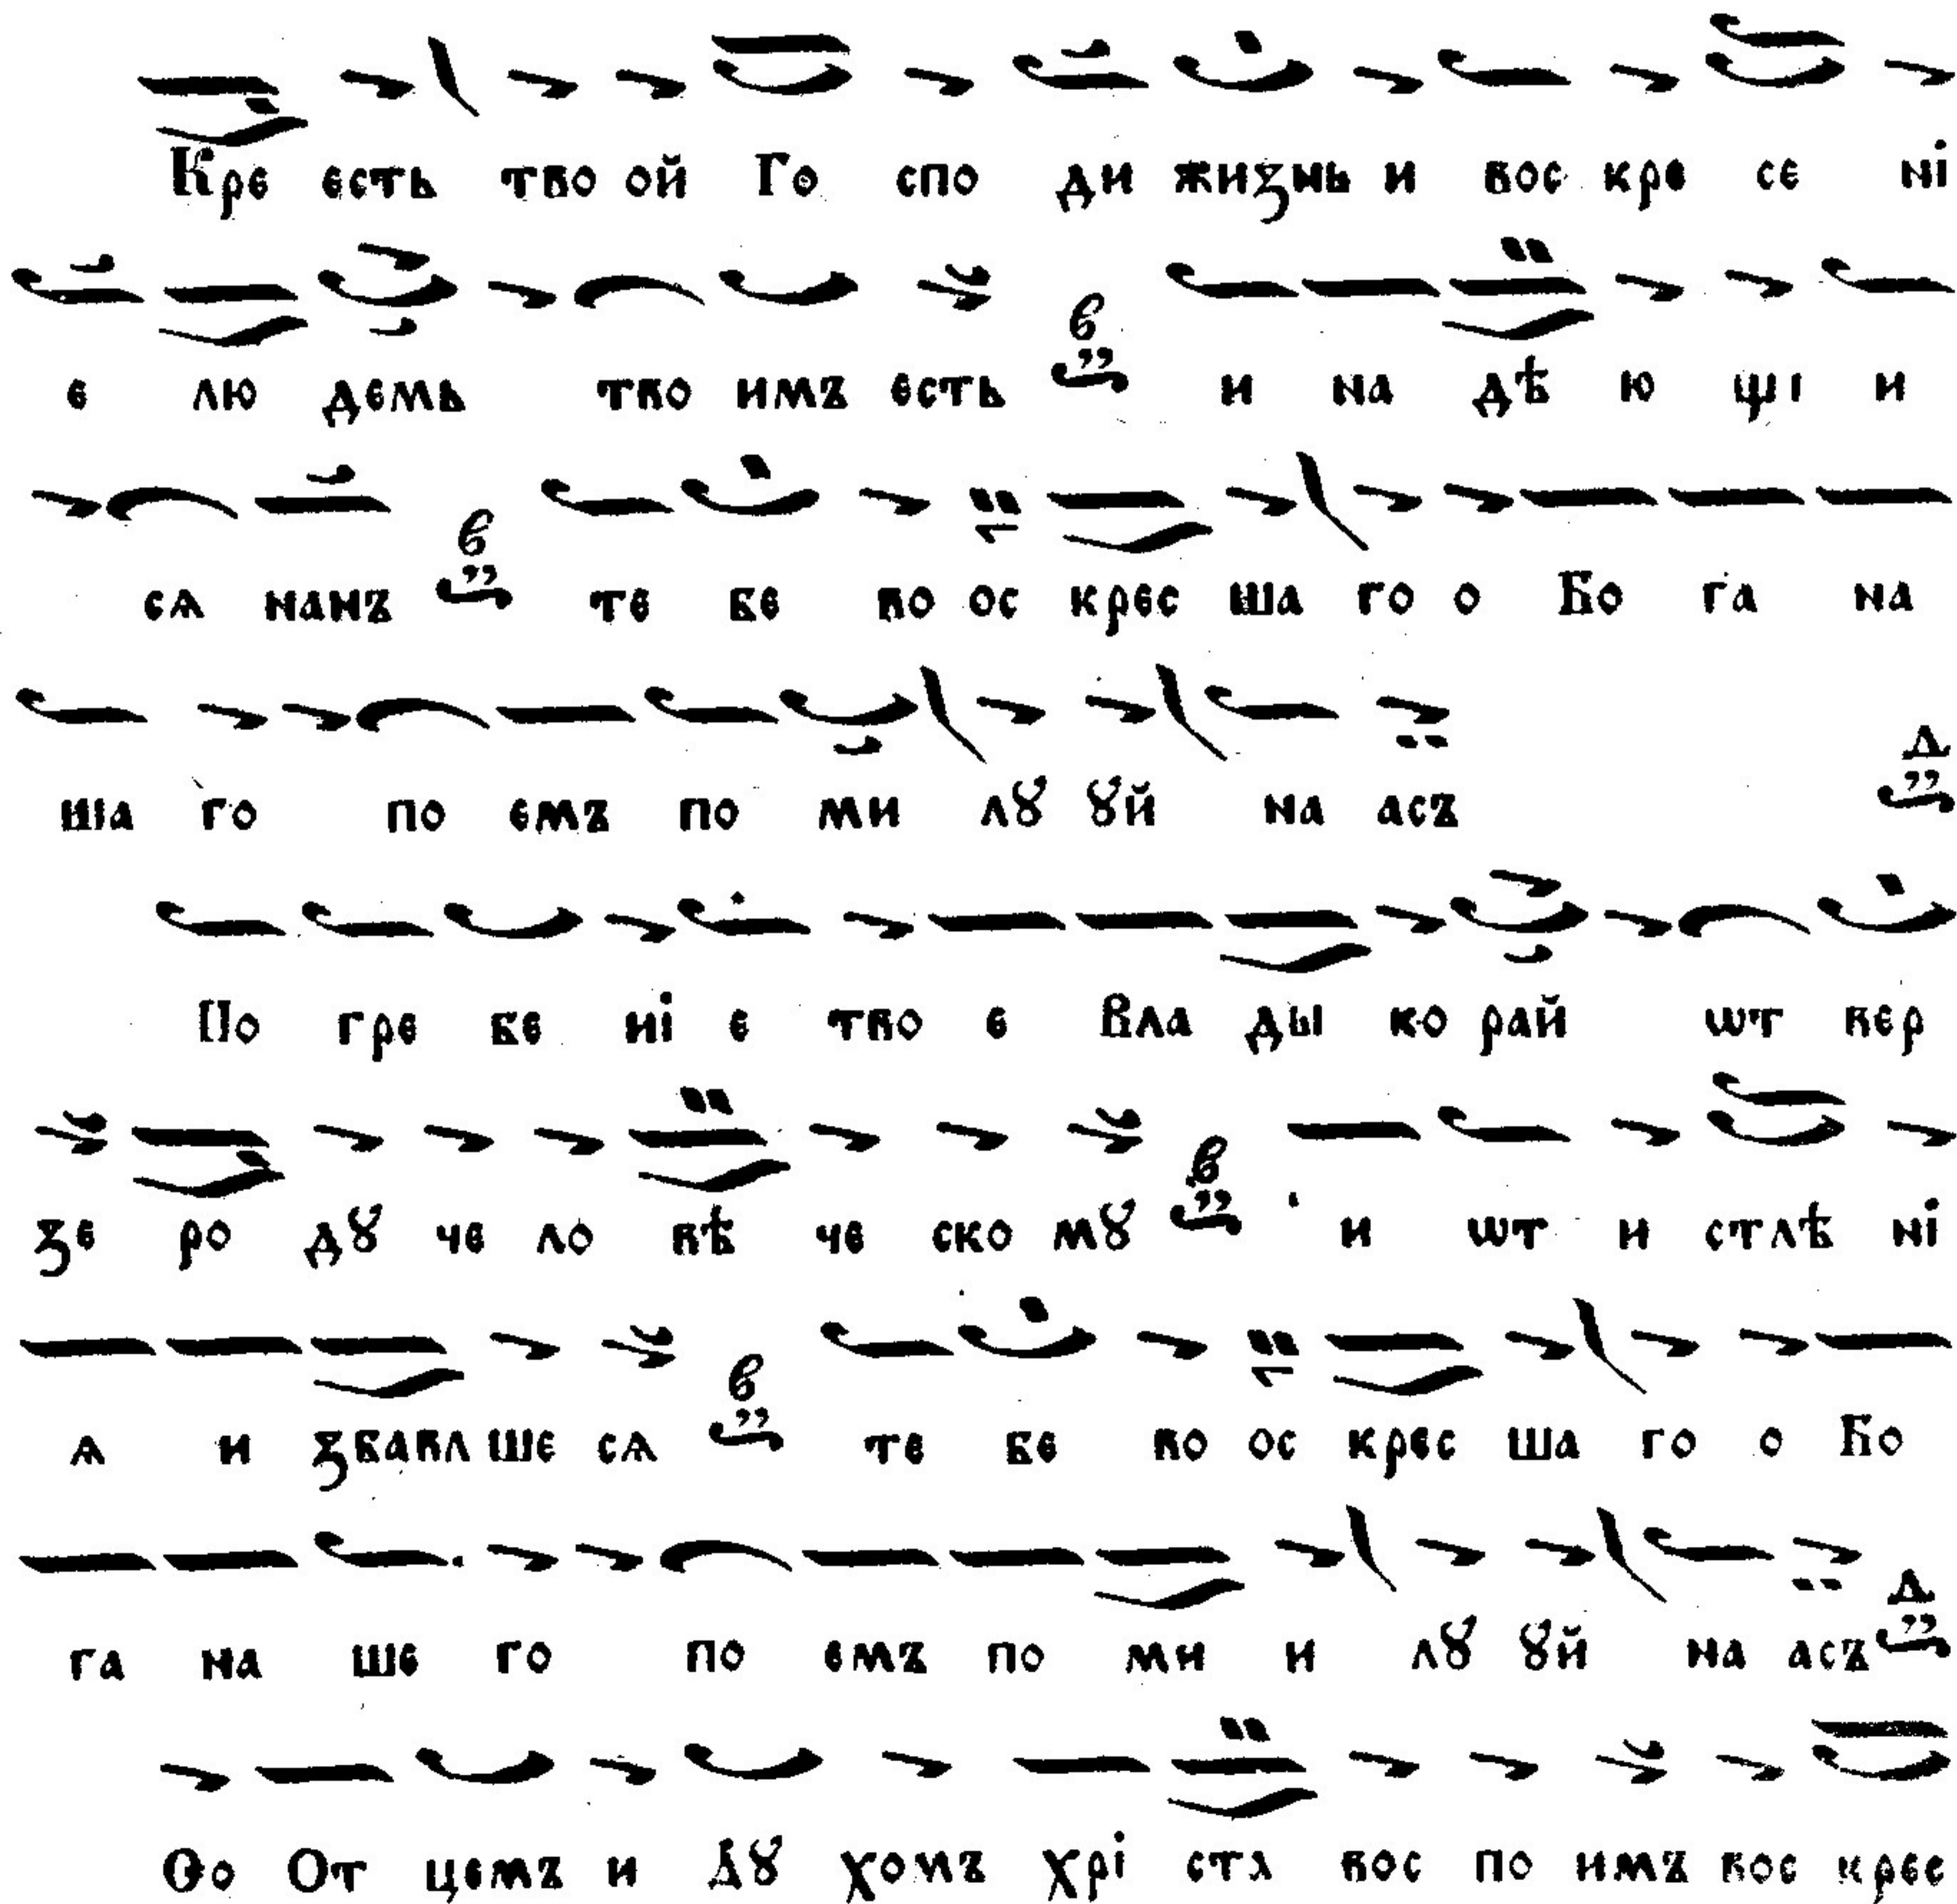 Кре есть тво ой Го спо ди жизнь и вос кре се нї
е лю демь тво имъ есть в и на дѣ ю щі и
сѧ нанъ в те бе во ос крес ша го о Бо га на
ша го по емъ по ми лꙋ ꙋй на асъ д
По гре бе ні е тво е Вла ды ко рай ѡт вер
зе ро дꙋ че ло вѣ че ско мꙋ в и ѡт и стлѣ ні
ѧ и збавл ше сѧ в те бе во ос крес ша го о Бо
га на ше го по емъ по ми и лꙋ ꙋй на асъ д
Со От цемъ и Дꙋ хомъ Хрі ста вос по имъ вос крес